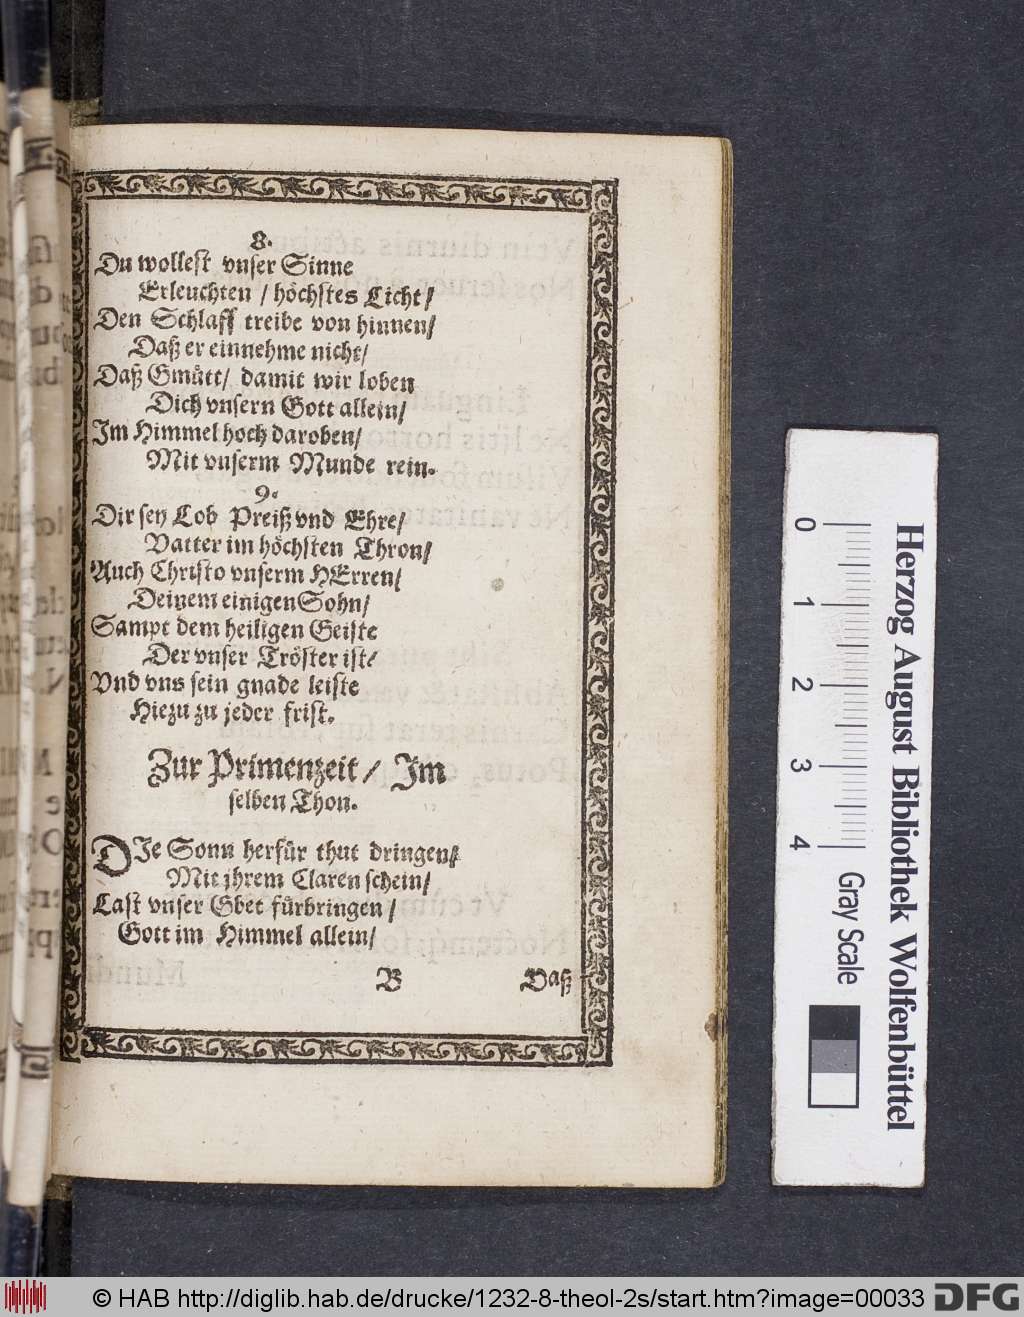 8.
Du wollest vnser Sinne
Erleuchten / höchstes Licht/
Den Schlaff treibe von hinnen/
Daß er einnehme nicht/
Daß Gmütt/ damit wir loben
Dich vnsern Gott allein/
Im Himmel hoch daroben/
Mit vnserm Munde rein.
9.
Dir sey Lob Preiß vnd Ehre/
Vatter im höchsten Thron/
Auch Christo vnserm HErren/
Deinem einigen Sohn/
Sampt dem heiligen Geiste
Der vnser Tröster ist/
Vnd vns sein gnade leiste
Hiezu zu jeder frist.
Zur Primenzeit / Im
selben Thon.
DIe Sonn herfür thut dringen/
Mit jhrem Claren schein/
Last vnser Gbet fürbringen /
Gott im Himmel allein/
B Daß
0 1 2 3 4
Gray Scale
Herzog August Bibliothek Wolfenbüttel
© HAB http://diglib.hab.de/drucke/1232-8-theol-2s/start.htm?image=00033
DFG